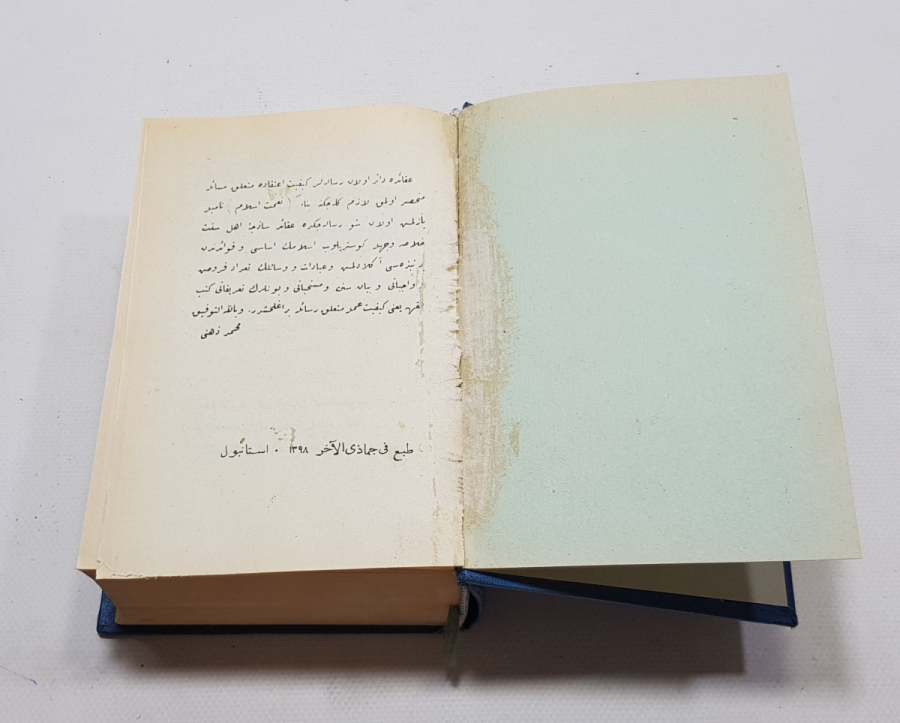 عقائده دائر اولان رساله‌لر كيفيت اعتقاده متعلق مسائله
منحصر اولمق لازم كله‌جكنه بناءً (نعمت اسلام) نامیله
یازلمش اولان شو رساله‌جكده عقائد سازجهٔ اهل سنت
خلاصه وجهله كوستریلوب اسلامك اساسی و فوائدندن
نبذه‌سی آكلادلمش وعبادات و وسائلك تعداد فروض
و واجباتی و بیان سنن و مستحباتی و بونلرك تعریفاتی كتب
فقهه یعنی كیفیت عمله متعلق رسائله براغلمشدر. وبالله التوفیق
محمد ذهنی
طبع فی جماذی الآخر ١٣٩٨ . استانبول